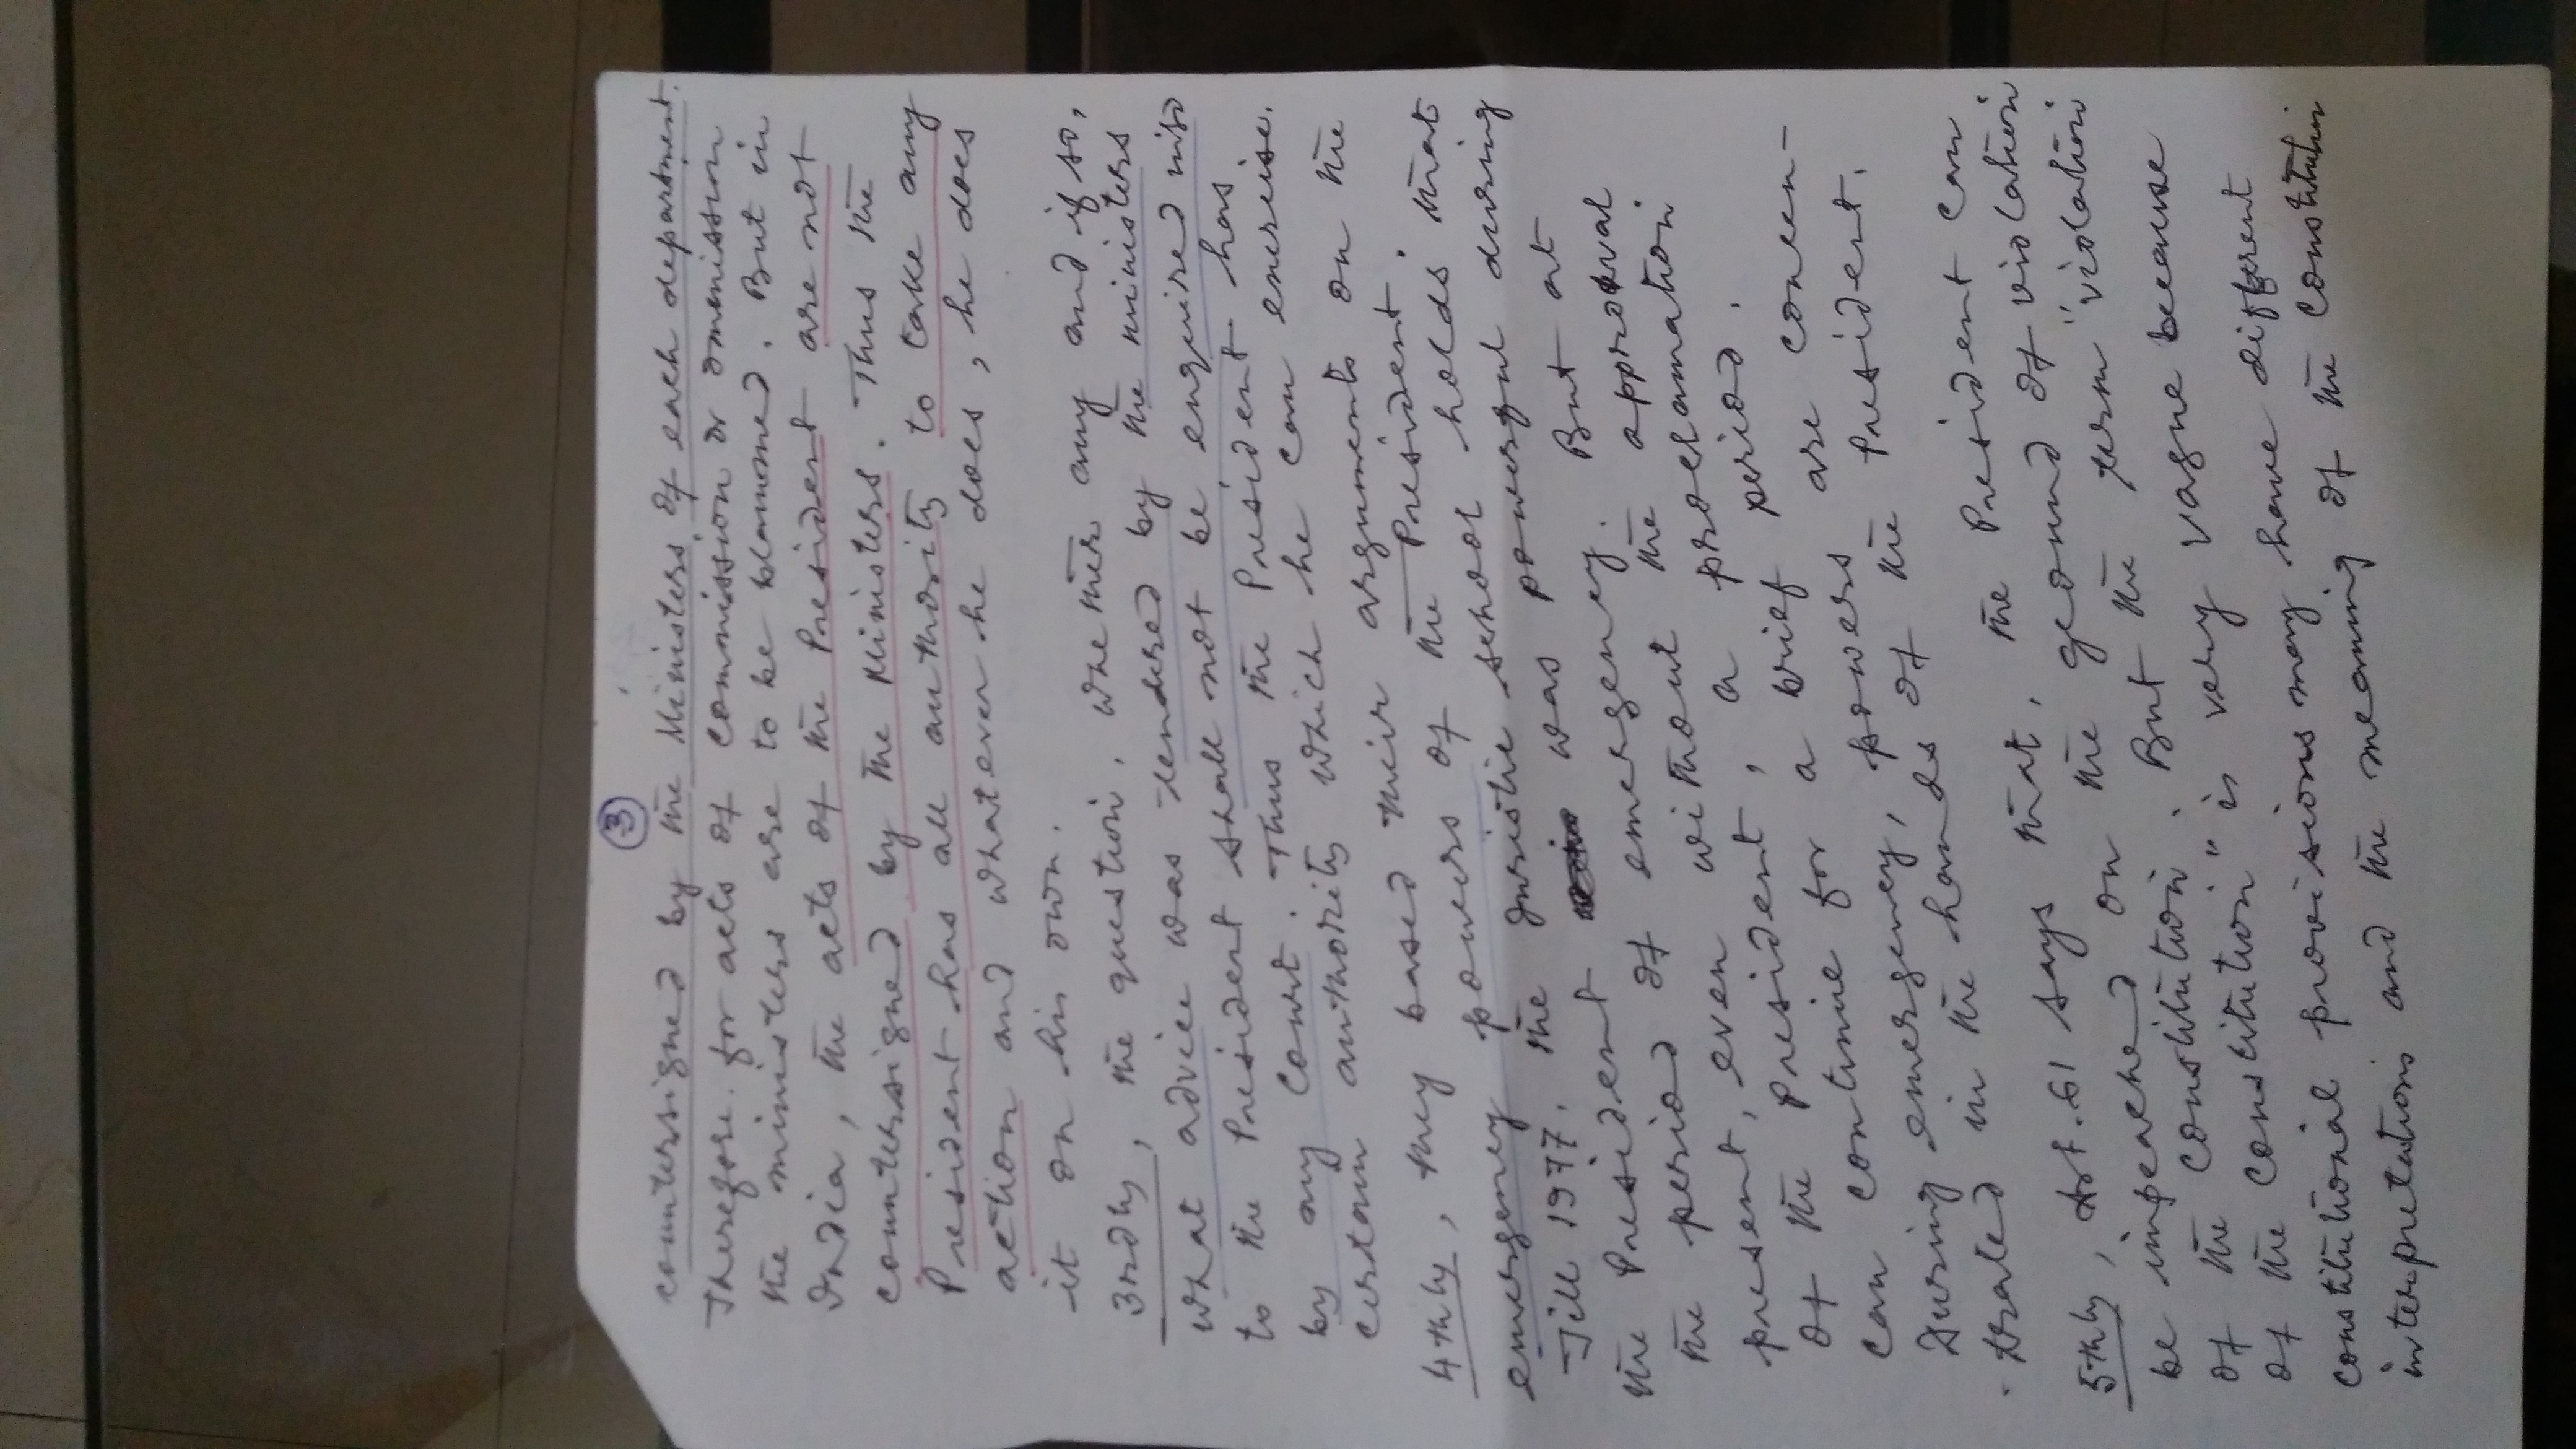 3
countersigned by the Ministers of each department.
Therefore. for acts of commission or ommission
the ministers are to be blammed. But in
India, the acts of the President are not
countersigned by the Ministers. Thus the
President has all authority to take any
action and whatever he does, he does
it on his own.
3rdly, the question, whether any and if so,
what advice was tendered by the ministers
to the President shall not be enquired into
by any Court. Thus the President has
certain authority which he can exercise.
4thly, they based their arguments on the
emergency powers of the President.
Till 1977, the juristic school holds that
the President was powerful during
the period of emergency. But at
present, even without the approval
of the President, the proclamation
can continue for a brief period.
During emergency, powers are concen-
trated in the hands of the President.
5thly, Art. 61 says that, the President can
be impeached on the ground of violation
of the Constitution. But the term "violation
of the constitution" is very vague because
constitutional provisions may have different
interpretations and the meaning of the constitution